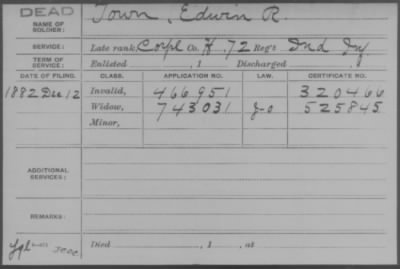 DEAD
NAME OF SOLDIER: Town, Edwin R.
SERVICE: Late rank, Corpl Co. K, 72 Reg't Ind Inf
TERM OF SERVICE: Enlisted , 1 Discharged
DATE OF FILING. CLASS. APPLICATION NO. LAW. CERTIFICATE NO.
1882 Dec 12 Invalid, 466951 320466
Widow, 743031 525845
Minor,
ADDITIONAL SERVICES:
REMARKS:
Died , 1 , at